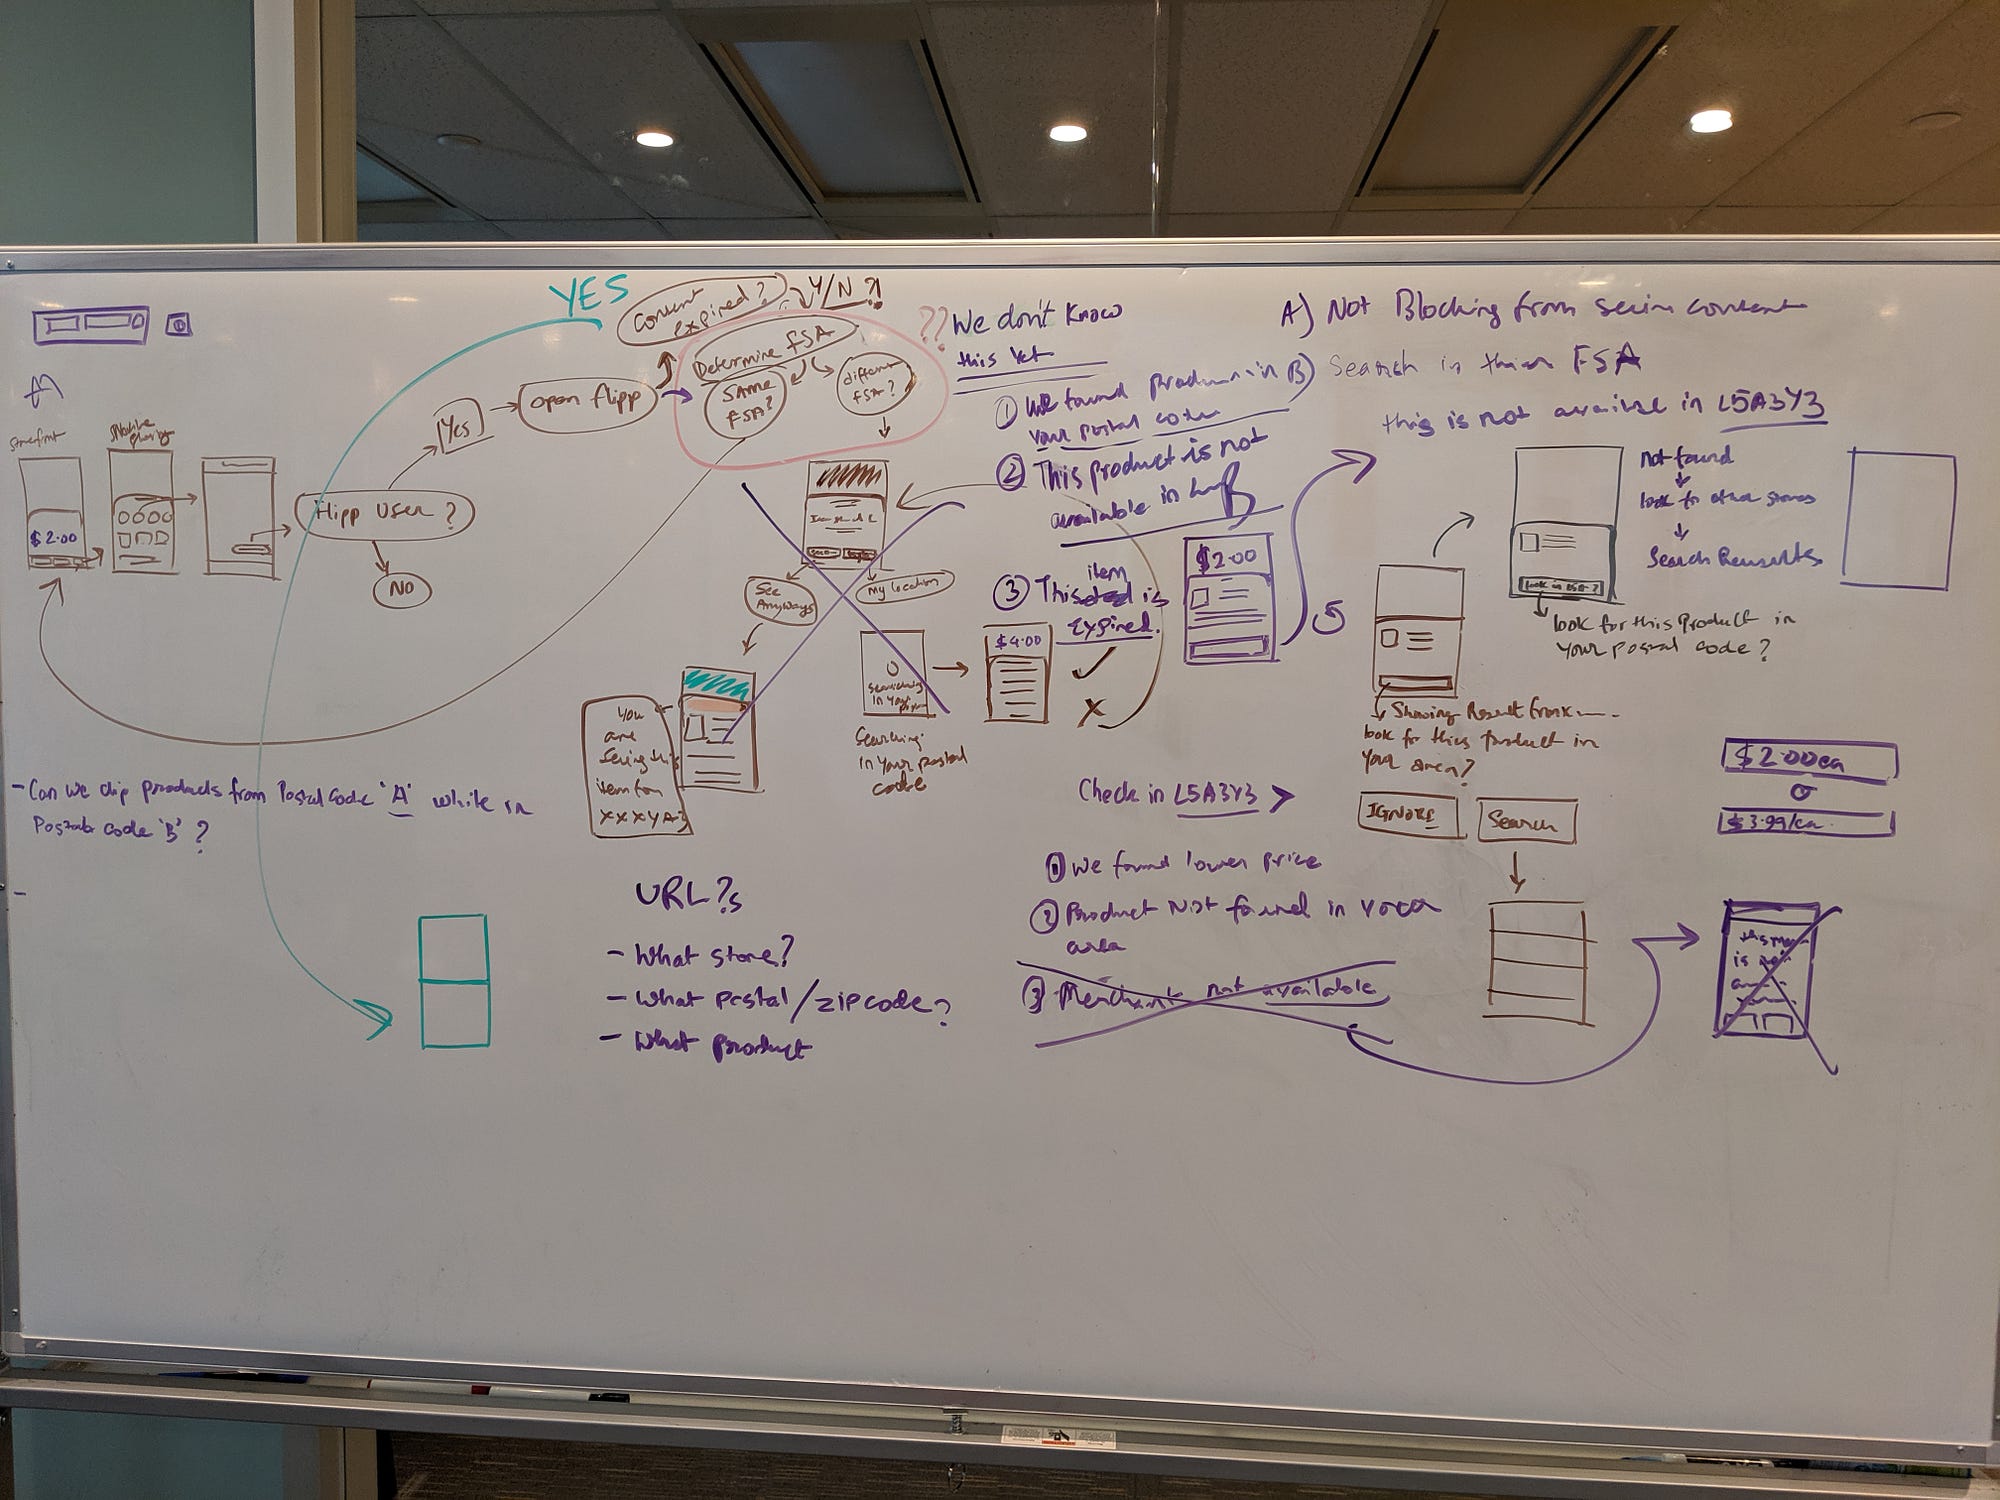 YES
content expired?
Y/N ?!
Determine FSA
SAME FSA?
different FSA?
open flipp
Yes
Flipp User ?
NO
storefront
$2.00
??
We don't know
this yet
① We found product in
your postal code
② This product is not
available in
item
③ This is
expired.
$2.00
$4.00
See
Anyways
My location
Searching
in your
Searching
in your postal
code
you
are
seeing this
item from
XXXYAZ
A) Not Blocking from seein content
B) Search in their FSA
this is not available in L5A3Y3
not found
look for other stores
Search
look in L5A ?
look for this Product in
your postal code?
Showing Result from
look for this product in
your area?
IGNORE
Search
Check in L5A3Y3 >
① We found lower price
② Product Not found in
area
③ Merchant not available
$2.00ea
$3.99/ea
- Can we clip products from Postal Code 'A' while in
Postal code 'B' ?
-
URL?s
- What store?
- What postal/zipcode?
- What product